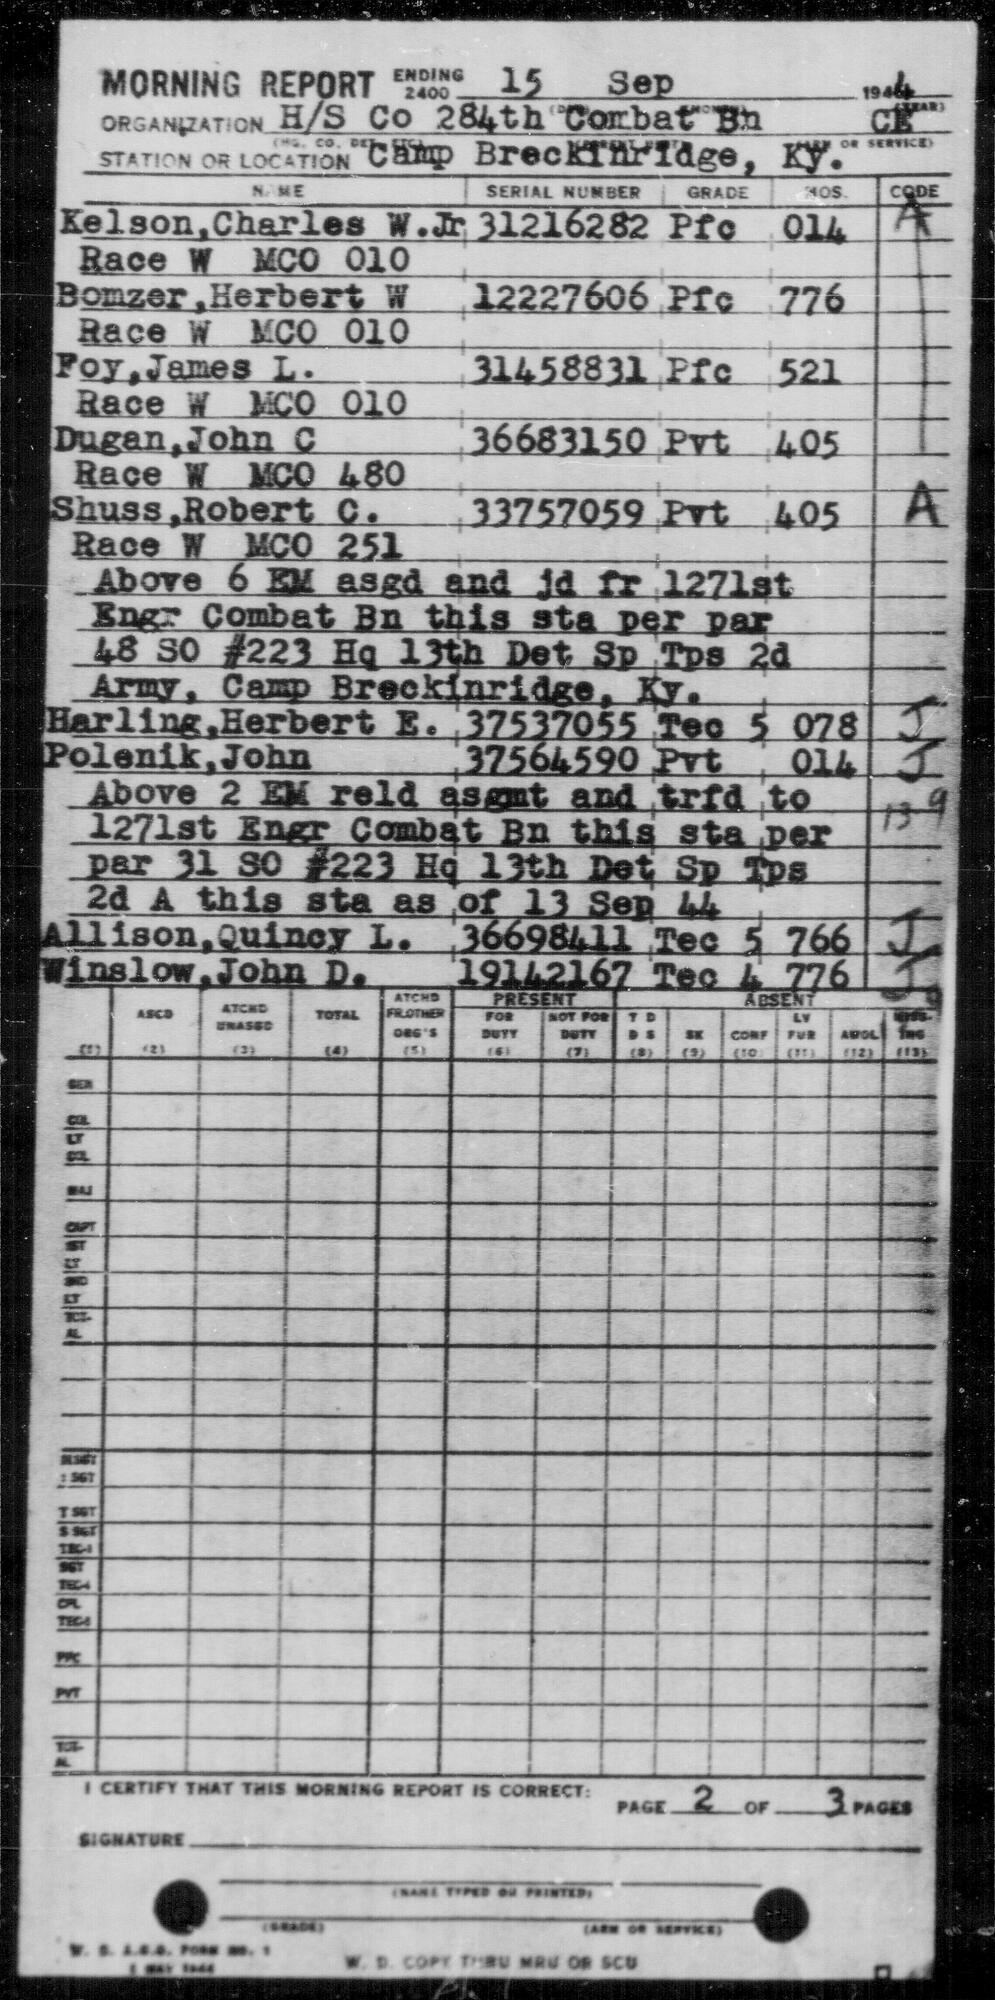 MORNING REPORT ENDING 2400 15 Sep 1944
(DAY) (MONTH) (YEAR)
ORGANIZATION H/S Co 284th Combat Bn CE
(HQ. CO. DET. ETC.) (PARENT UNIT) (ARM OR SERVICE)
STATION OR LOCATION Camp Breckinridge, Ky.
NAME SERIAL NUMBER GRADE MOS. CODE
Kelson,Charles W.Jr 31216282 Pfc 014 A
Race W MCO 010
Bomzer,Herbert W 12227606 Pfc 776
Race W MCO 010
Foy,James L. 31458831 Pfc 521
Race W MCO 010
Dugan,John C 36683150 Pvt 405
Race W MCO 480
Shuss,Robert C. 33757059 Pvt 405 A
Race W MCO 251
Above 6 EM asgd and jd fr 1271st
Engr Combat Bn this sta per par
48 SO #223 Hq 13th Det Sp Tps 2d
Army, Camp Breckinridge, Ky.
Harling,Herbert E. 37537055 Tec 5 078 J
Polenik,John 37564590 Pvt 014 J
Above 2 EM reld asgmt and trfd to 13-9
1271st Engr Combat Bn this sta per
par 31 SO #223 Hq 13th Det Sp Tps
2d A this sta as of 13 Sep 44
Allison,Quincy L. 36698411 Tec 5 766 J
Winslow,John D. 19142167 Tec 4 776 J
PRESENT ABSENT
ASGD ATCHD UNASGD TOTAL ATCHD FR.OTHER ORG'S FOR DUTY NOT FOR DUTY T D D S SK CONF LV FUR AWOL MISS-ING
(1) (2) (3) (4) (5) (6) (7) (8) (9) (10) (11) (12) (13)
GEN
COL
LT
COL
MAJ
CAPT
1ST
LT
2ND
LT
TOT-
AL
M SGT
1 SGT
T SGT
S SGT
TEC-3
SGT
TEC-4
CPL
TEC-5
PFC
PVT
TOT-
AL
I CERTIFY THAT THIS MORNING REPORT IS CORRECT:
PAGE 2 OF 3 PAGES
SIGNATURE
(NAME TYPED OR PRINTED)
(GRADE) (ARM OR SERVICE)
W. D. A.G.O. FORM NO. 1
1 MAY 1944
W. D. COPY THRU MRU OR SCU